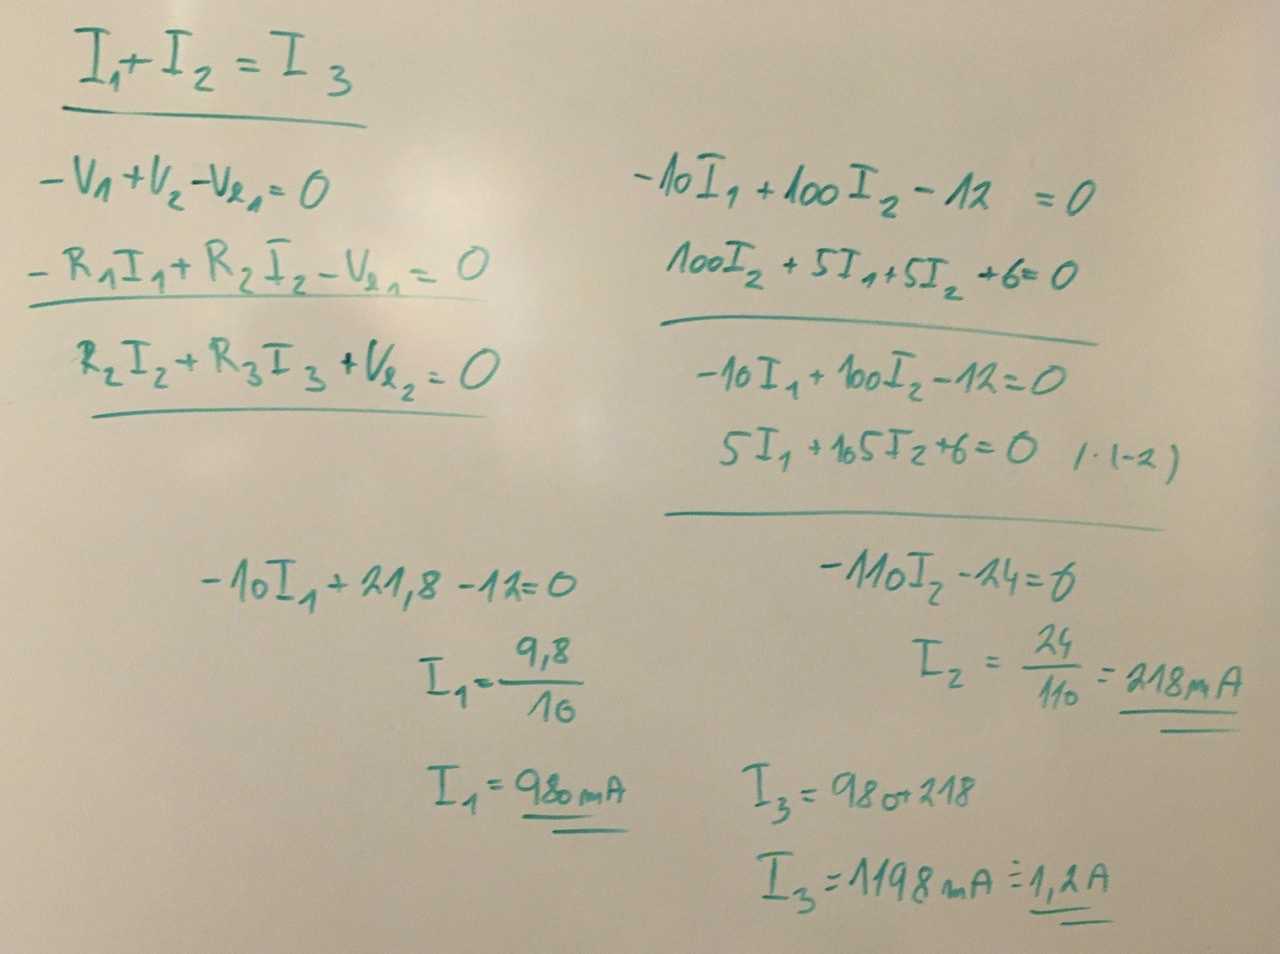 I₁+I₂=I₃
-V₁+V₂-Vℓ₁=0
-R₁I₁+R₂I₂-Vℓ₁=0
R₂I₂+R₃I₃+Vℓ₂=0
-10I₁+100I₂-12=0
100I₂+5I₁+5I₂+6=0
-10I₁+100I₂-12=0
5I₁+105I₂+6=0 /·(-2)
-110I₂-24=0
I₂=24/110=218mA
-10I₁+21,8-12=0
I₁=9,8/10
I₁=980mA
I₃=980+218
I₃=1198mA≐1,2A